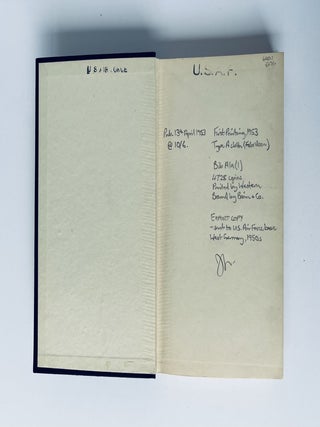 U.S.A.F.
Pub. 13th April 1953
@ 10/6.
First Printing, 1953
Type A cloth,
Bib A1a (1)
4728 copies
Printed by Western
Bound by & Co.
EXPORT COPY
- sent to U.S. Air Force base
West Germany, 1950s